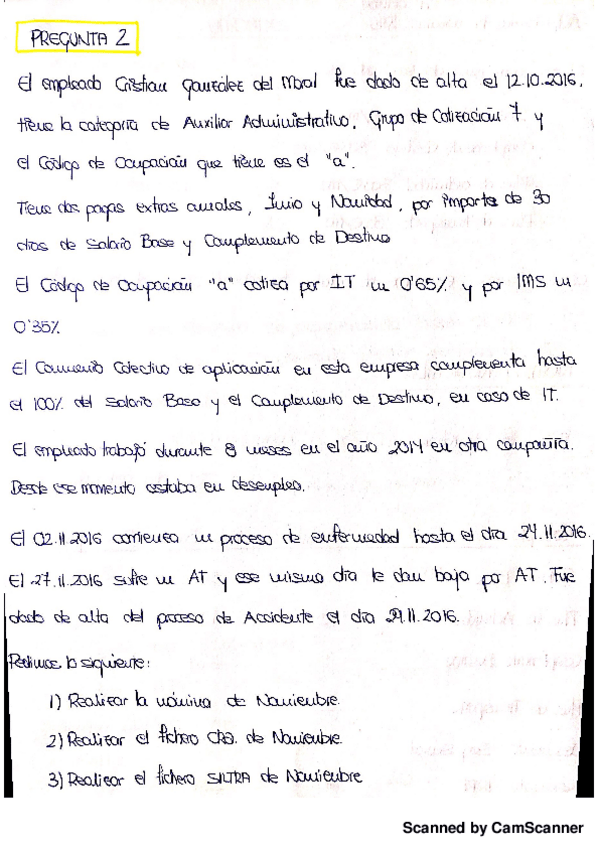 PREGUNTA 2
El empleado Cristian González del Moral fue dado de alta el 12.10.2016,
tiene la categoría de Auxiliar Administrativo, Grupo de Cotización 7 y
el Código de Ocupación que tiene es el "a".
Tiene dos pagas extras anuales, Junio y Navidad, por importe de 30
días de Salario Base y Complemento de Destino
El Código de Ocupación "a" cotiza por IT un 0'65% y por IMS un
0'35%
El Convenio Colectivo de aplicación en esta empresa complementa hasta
el 100% del Salario Base y el Complemento de Destino, en caso de IT.
El empleado trabajó durante 8 meses en el año 2014 en otra compañía.
Desde ese momento estaba en desempleo.
El 02.11.2016 comienza un proceso de enfermedad hasta el día 24.11.2016.
El 27.11.2016 sufre un AT y ese mismo día le dan baja por AT. Fue
dado de alta del proceso de Accidente el día 29.11.2016.
Pedimos lo siguiente:
1) Realizar la nómina de Noviembre.
2) Realizar el fichero CRA. de Noviembre.
3) Realizar el fichero SILTRA de Noviembre
Scanned by CamScanner